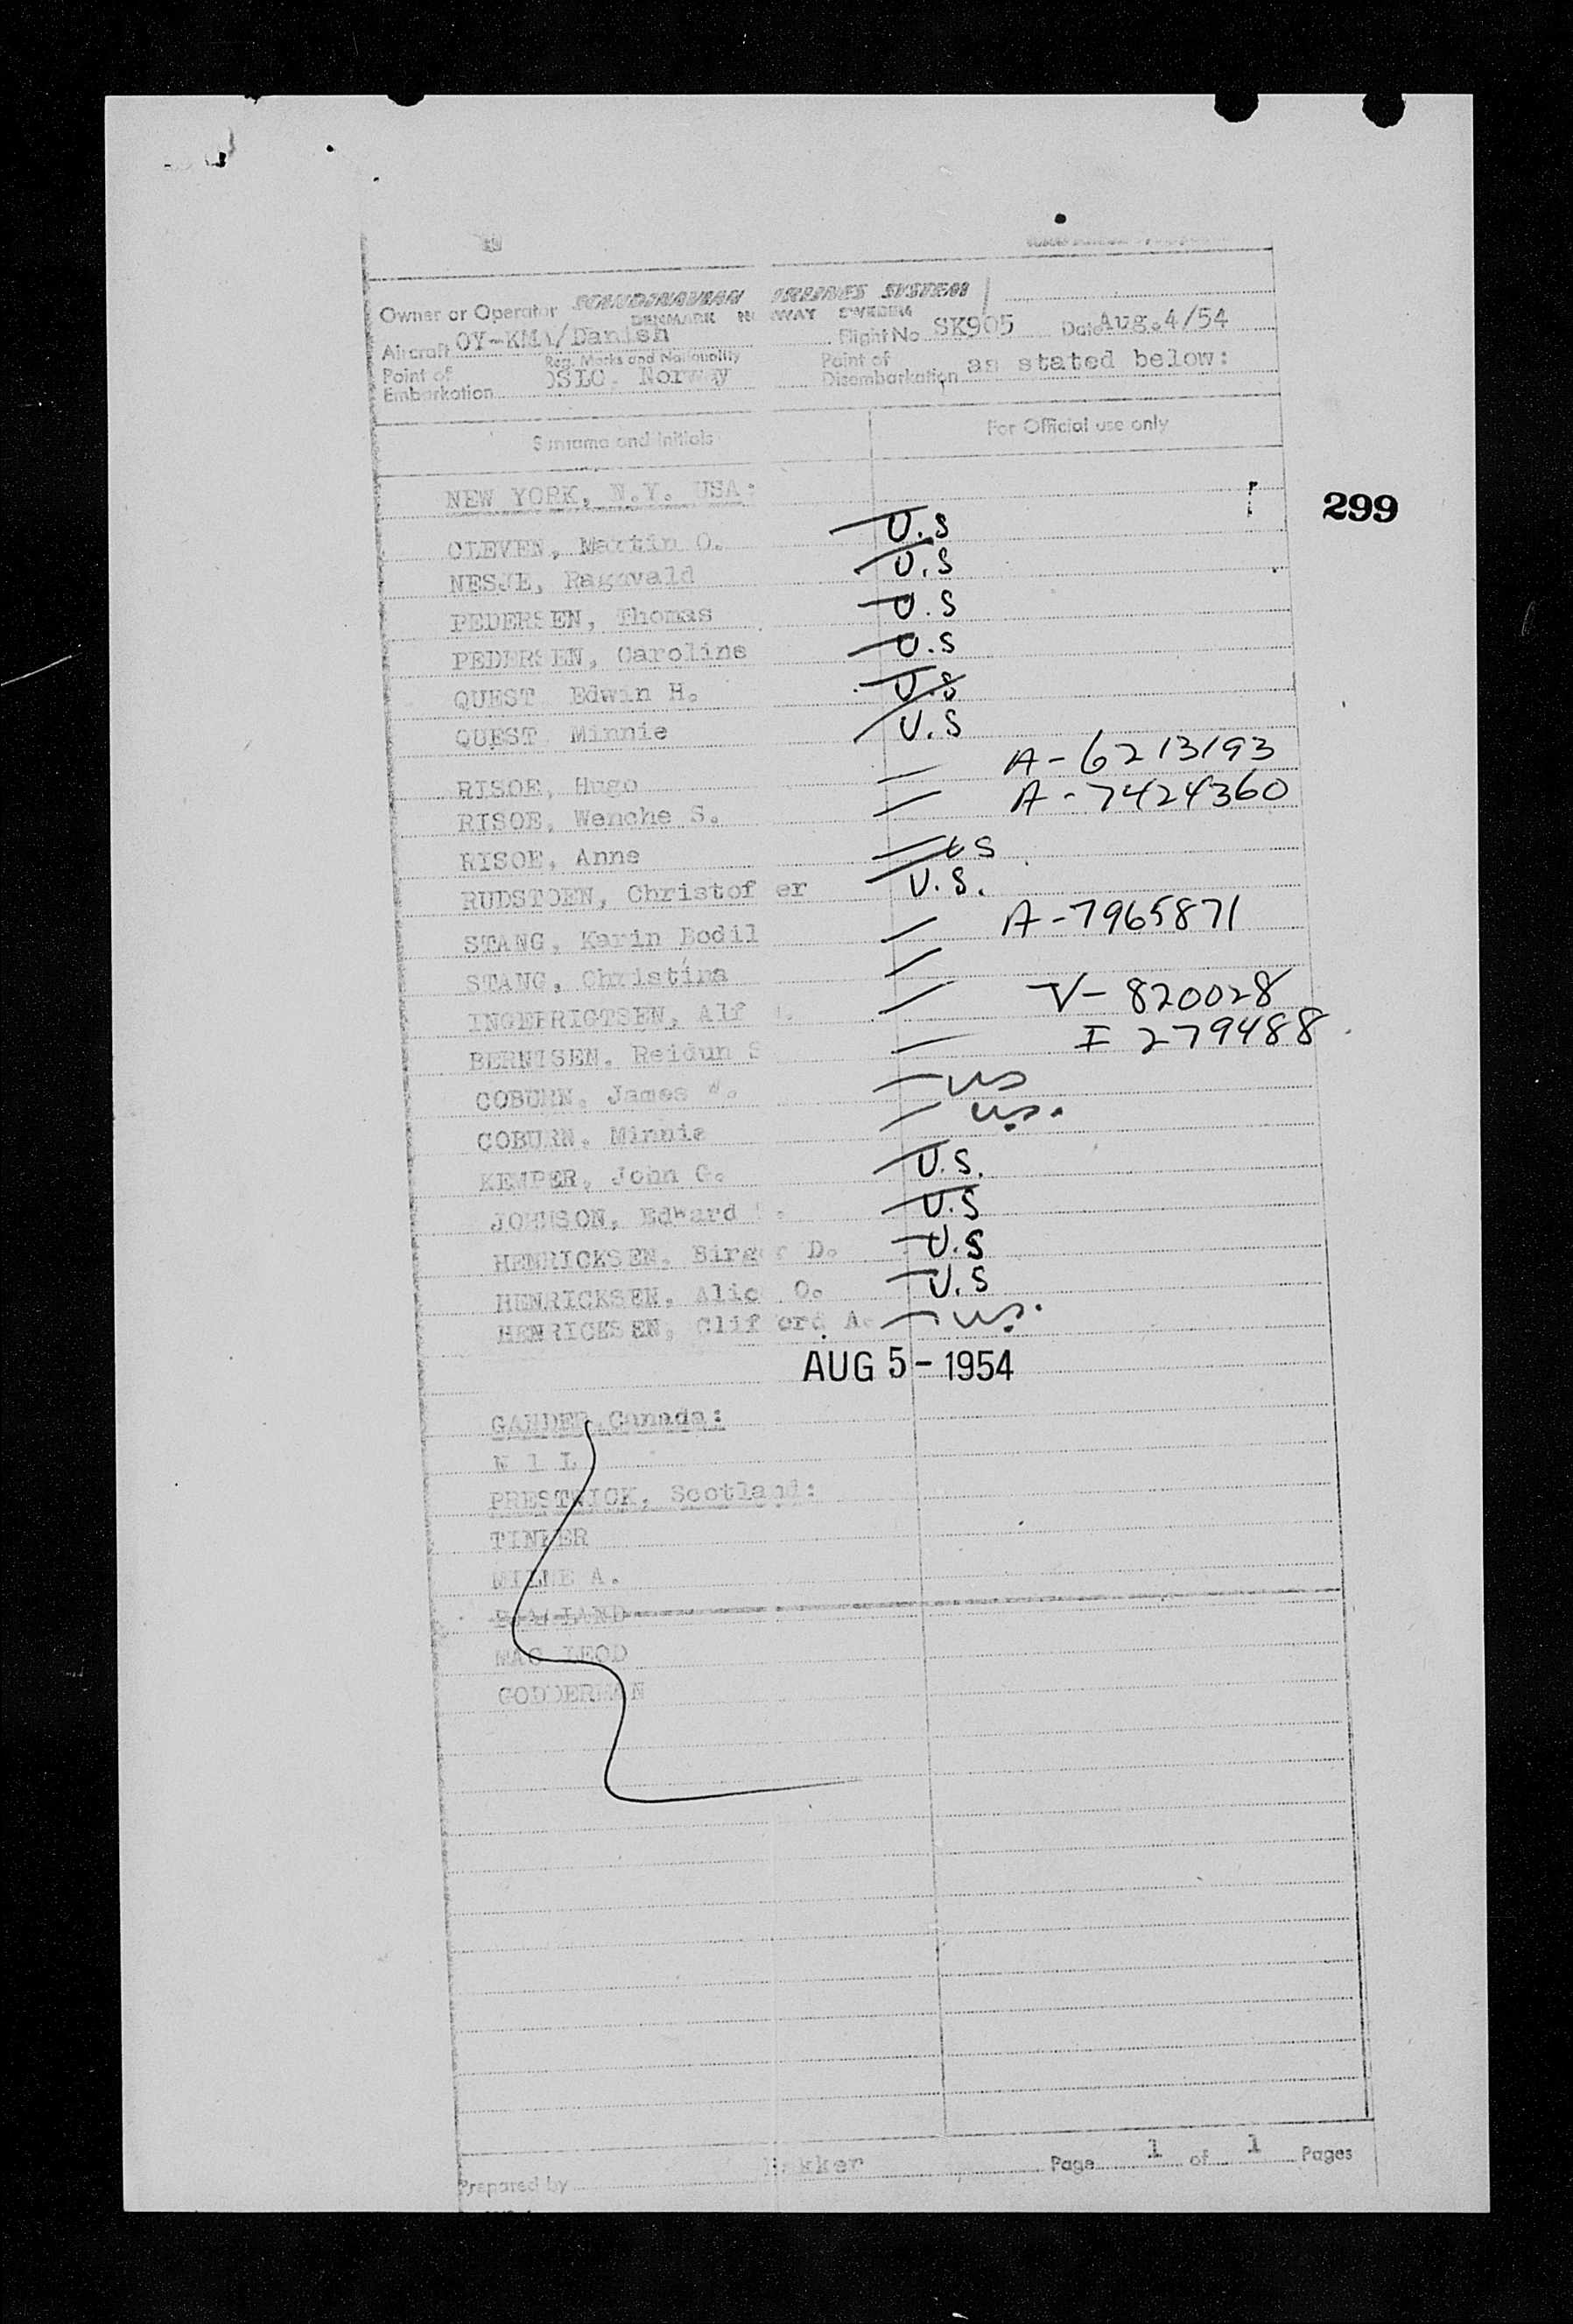 Owner or Operator SCANDINAVIAN AIRLINES SYSTEM
DENMARK NORWAY SWEDEN
Aircraft OY-KMA/Danish Flight No SK905 Date Aug.4/54
Reg. Marks and Nationality
Point of Embarkation OSLO, Norway Point of Disembarkation as stated below:
Surname and Initials For Official use only
NEW YORK, N.Y. USA:
299
CLEVEN, Martin O. U.S
NESJE, Ragnvald U.S
PEDERSEN, Thomas U.S
PEDERSEN, Caroline U.S
QUEST Edwin H. U.S
QUEST Minnie U.S
RISOE, Hugo A-6213193
RISOE, Wenche S. A-7424360
RISOE, Anne US
RUDSTOEN, Christoffer U.S.
STANG, Karin Bodil A-7965871
STANG, Christina
INGEBRIGTSEN, Alf V-820028
BERNTSEN, Reidun S I 279488
COBURN, James W. US
COBURN, Minnie U.S.
KEMPER, John G. U.S.
JOHNSON, Edward U.S
HENRICKSEN, Birger D. U.S
HENRICKSEN, Alice O. U.S
HENRICKSEN, Clifford A. U.S.
AUG 5 - 1954
GANDER, Canada:
N I L
PRESTWICK, Scotland:
TINKER
MILNE A.
MAC LEOD
GODDERMAN
Prepared by Page 1 of 1 Pages